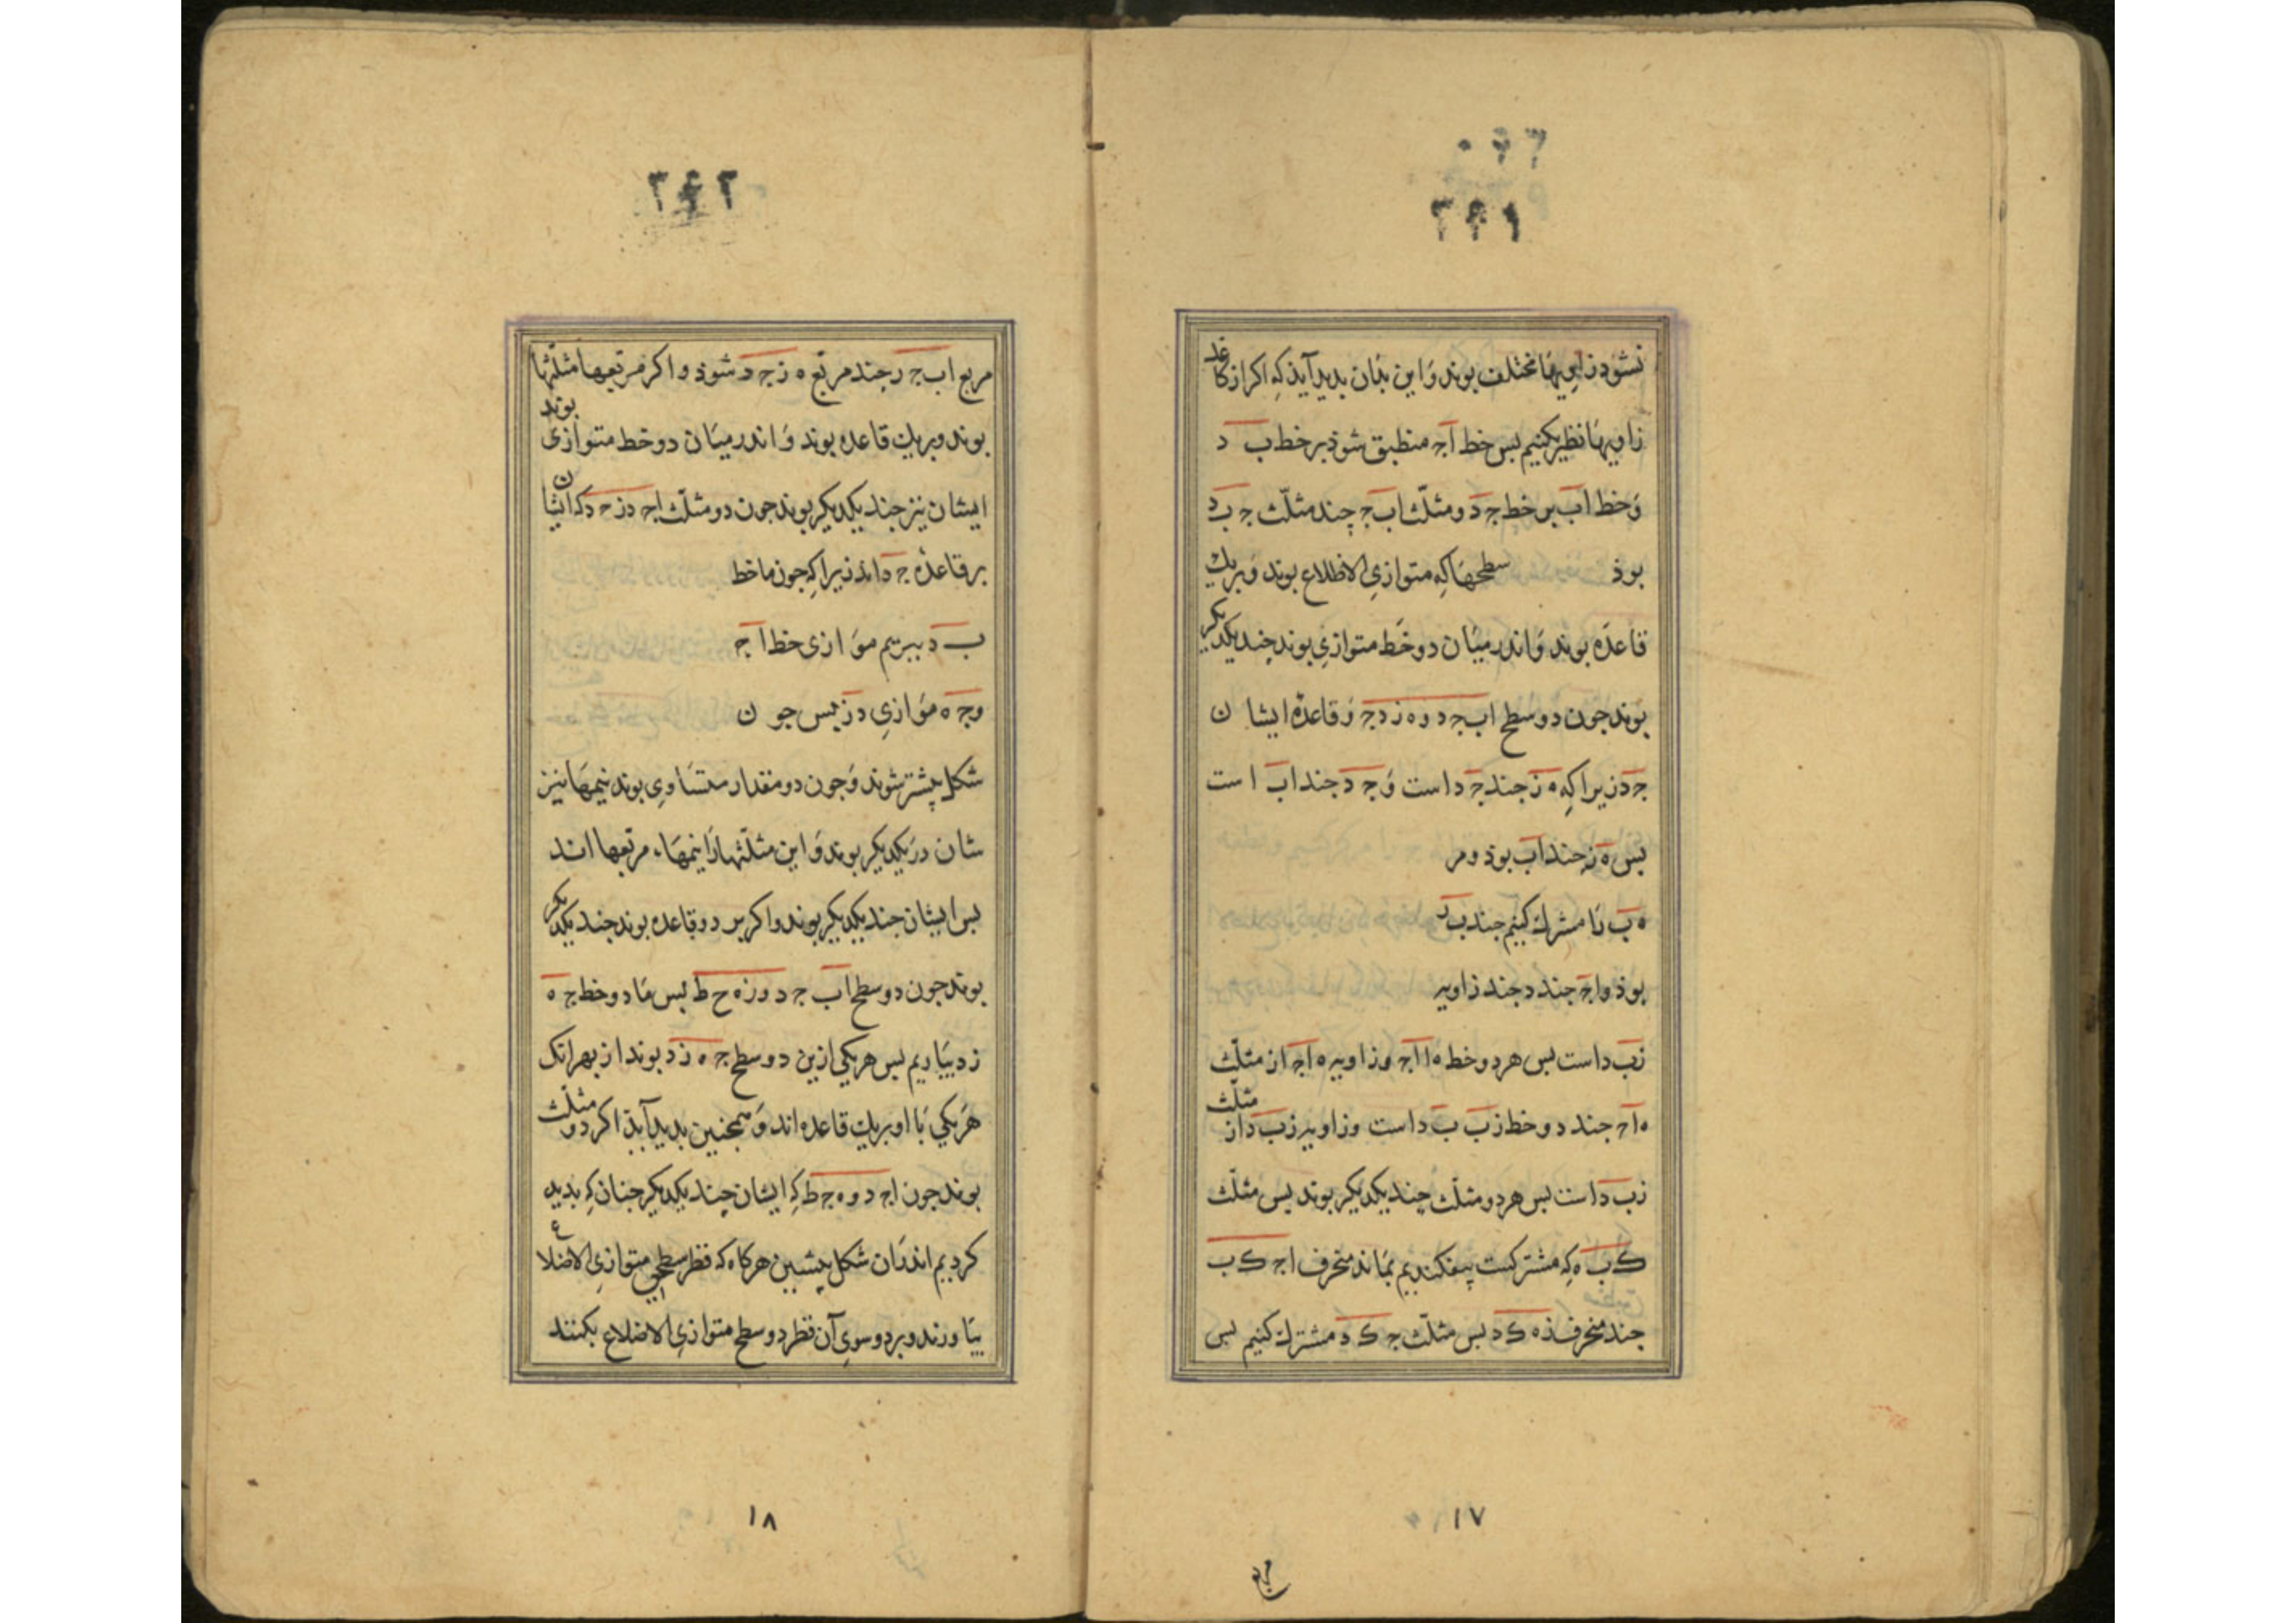 ۳۴۱
نشود زاویها مختلف بوند و این بدان بدید آید که اکر از کاغد
زاویها نظیر بکنیم بس خط اج منطبق شود بر خط ب د
و خط اب بر خط ج د و مثلّث اب ج چند مثلّث ج ب د
بوذ سطحها که متوازی الاظلاع بوند و بر یك
قاعده بوند و اندر میان دو خط متوازی بوند چند یکدیکر
بوند جون دو سطح اب ج د و ه ز د ج و قاعدهٔ ایشان
ج د زیرا که ه ز جند ج د است و ج د جند اب است
بس ه ز جند اب بوذ و مر
ه ب را مشرك کنیم جند ب د
بوذ و اج جند د جند زاویه
زب د است بس هر دو خط ه ا اج و زاویه ه اج از مثلّث
ه اج جند دو خط زب ب د است و زاویه زب د از مثلّث
زب د است بس هر دو مثلّث چند یکدیکر بوند بس مثلّث
ك ب ه که مشترکست بیفکندیم بماند منحرف اج ك ب
جند منحرف زه ك د بس مثلّث ج ك د مشترك کنیم بس
۱۷
۳۴۲
مربع اب ج د جند مربّع ه ز ج د شوذ و اکر مربّعها مثلّثها
بوند و بر یك قاعده بوند و اندر میان دو خط متوازی بوند
ایشان نیز جند یکدیکر بوند جون دو مثلّث اج د ز ج د که ایشان
بر قاعدهٔ ج د اند زیرا که جون ما خط
ب د ببریم موازی خط اج
و ج ه موازی د ز بس جون
شکل بیشتر شوند و جون دو مقدار متساوی بوند نیمها نیز
شان در یکدیکر بوند و این مثلّثها را نیمهاء مربّعها اند
بس ایشان جند یکدیکر بوند و اکر بر دو قاعده بوند جند یکدیکر
بوند جون دو سطح اب ج د و ز ه ح ط بس ما دو خط ج ه
ز د بیاریم بس هر یکی ازین دو سطح ج ه ز د بوند از بهر انک
هر یکی با او بر یك قاعده اند و همجنین بدید آید اکر دو مثلّث
بوند جون اج د و ه ج ط که ایشان چند یکدیکر جنان که بدید
کردیم اندران شکل بیشین هر کاه که قطر سطحی متوازی الاضلاع
بیاورند و بر دو سوی آن قطر دو سطح متوازی الاضلاع بکنند
۱۸